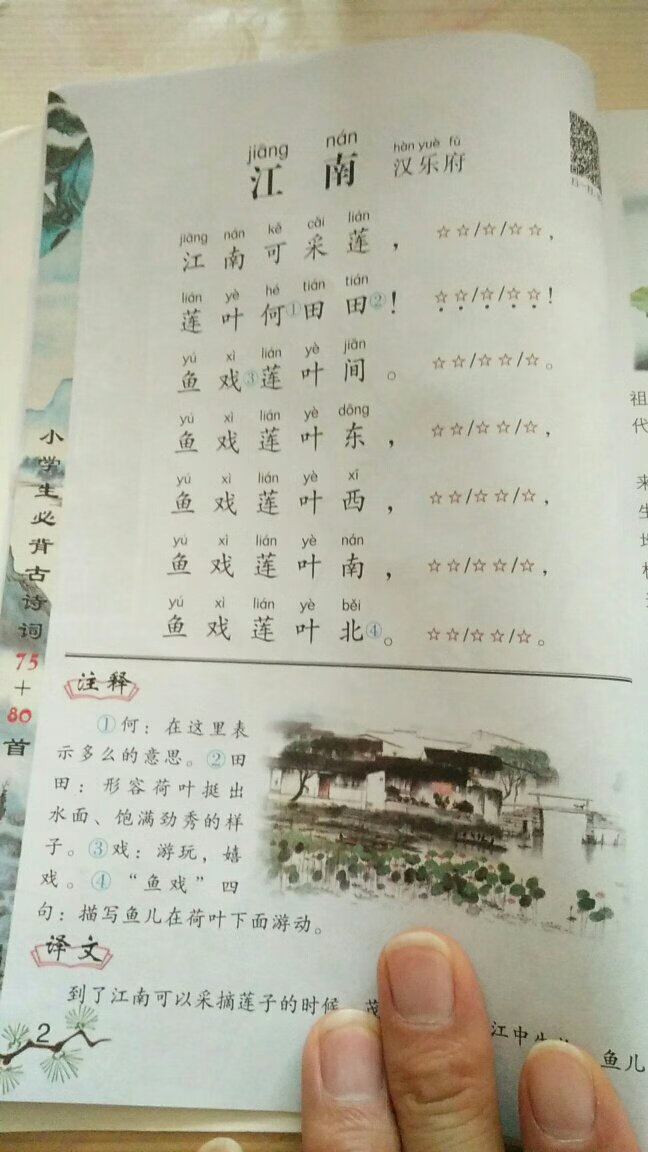 jiāng nán
江南
hàn yuè fǔ
汉乐府
jiāng nán kě cǎi lián
江南可采莲，
☆☆/☆/☆☆，
lián yè hé tián tián
莲叶何①田田②！
☆☆/☆/☆☆！
yú xì lián yè jiān
鱼戏③莲叶间。
☆☆/☆☆/☆。
yú xì lián yè dōng
鱼戏莲叶东，
☆☆/☆☆/☆，
yú xì lián yè xī
鱼戏莲叶西，
☆☆/☆☆/☆，
yú xì lián yè nán
鱼戏莲叶南，
☆☆/☆☆/☆，
yú xì lián yè běi
鱼戏莲叶北④。
☆☆/☆☆/☆。
小学生必背古诗词75+80首
注释
①何：在这里表
示多么的意思。②田
田：形容荷叶挺出
水面、饱满劲秀的样
子。③戏：游玩，嬉
戏。④“鱼戏”四
句：描写鱼儿在荷叶下面游动。
译文
到了江南可以采摘莲子的时候
江中 鱼儿
2
祖
代
来
生